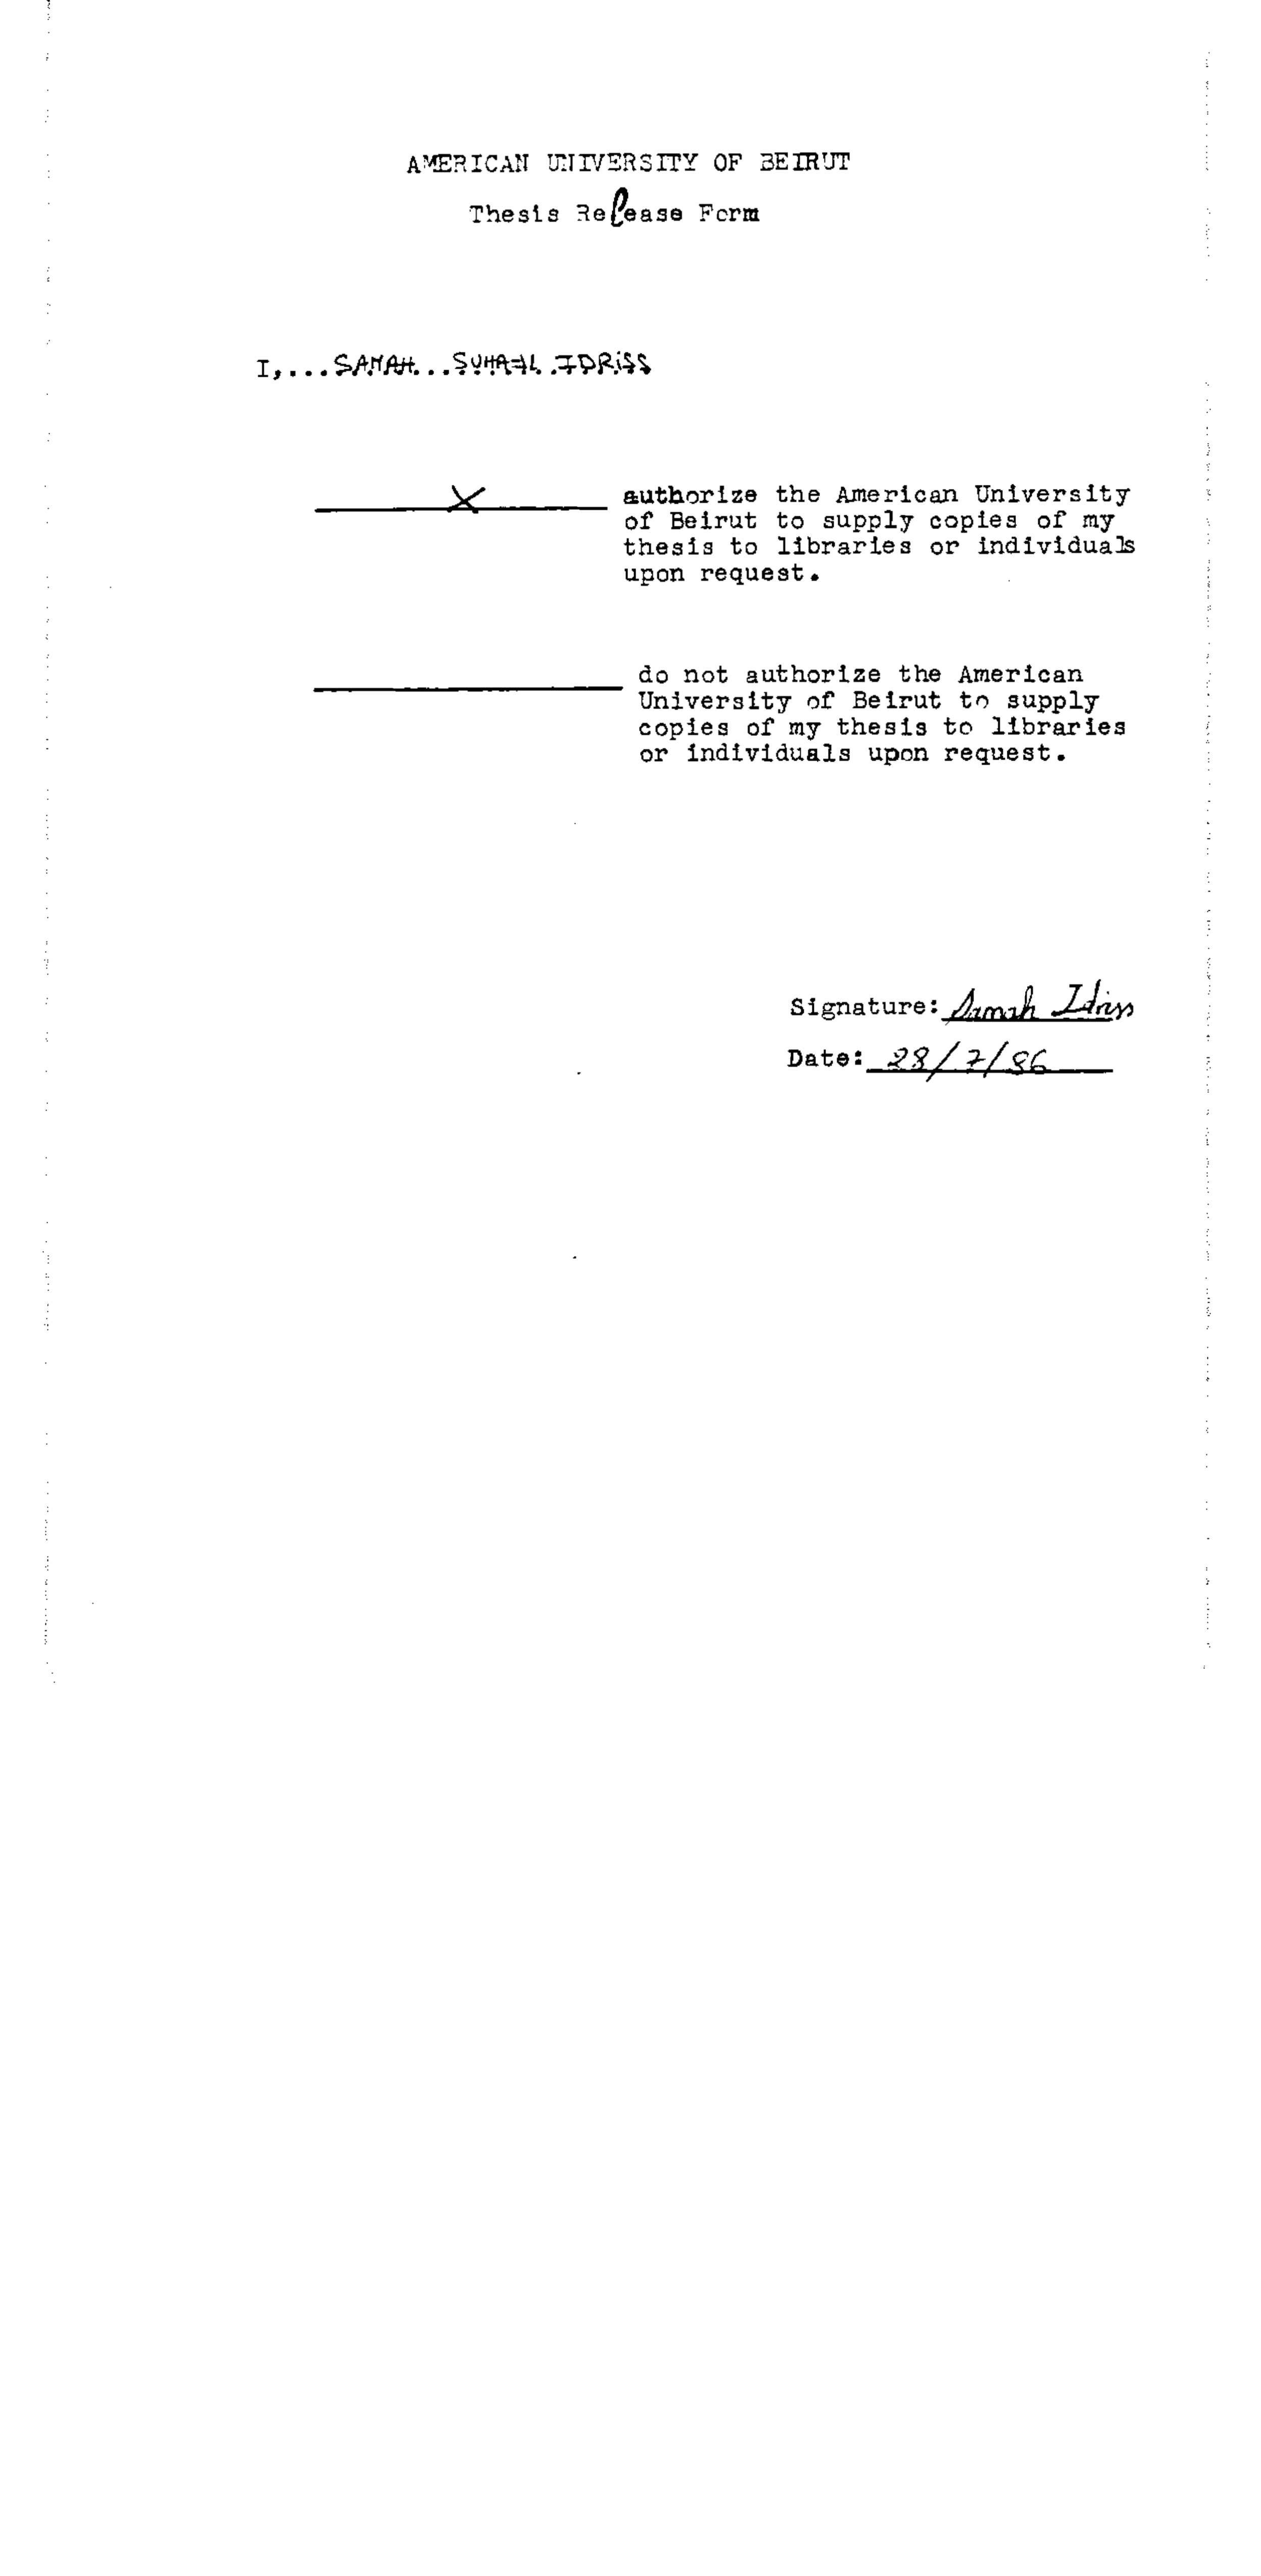 AMERICAN UNIVERSITY OF BEIRUT
Thesis Release Form
I,...SAMAH...SUHAIL.IDRISS
X authorize the American University
of Beirut to supply copies of my
thesis to libraries or individuals
upon request.
do not authorize the American
University of Beirut to supply
copies of my thesis to libraries
or individuals upon request.
Signature: Samah Idriss
Date: 28/7/86